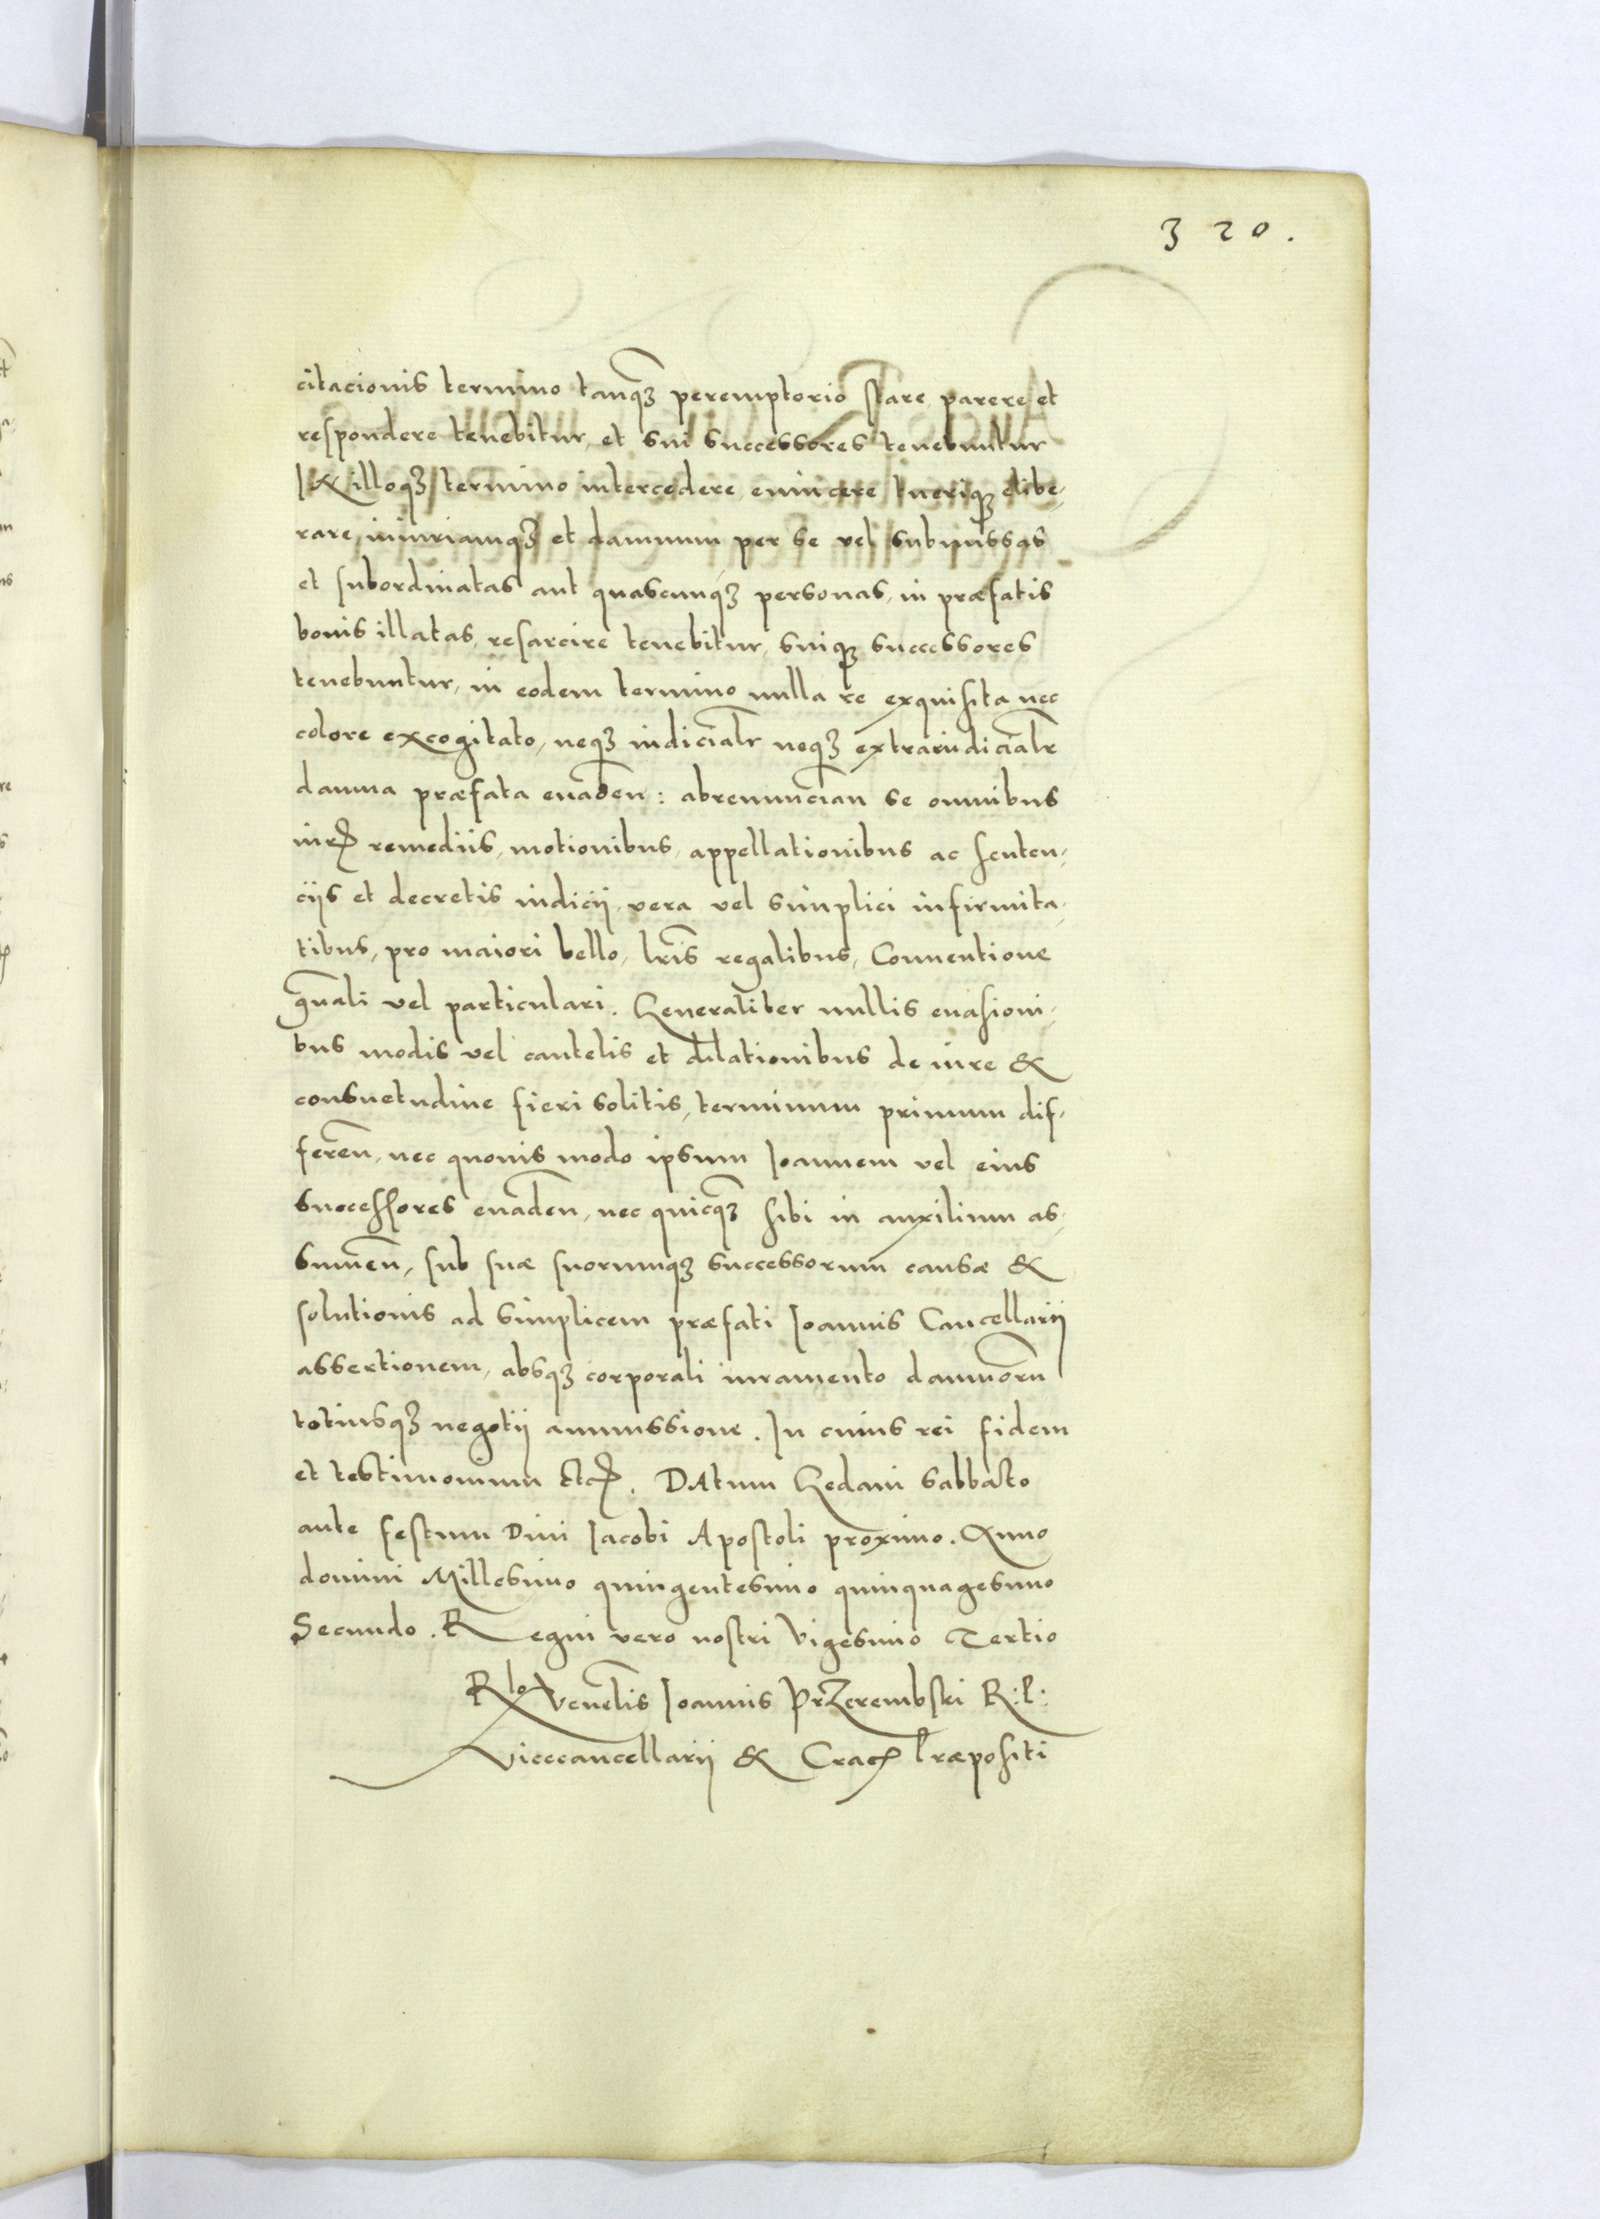 320.
citacionis termino tanqȝ peremptorio stare parere et
respondere tenebitur, et sui successores tenebuntur
I & illoqȝ termino intercedere euincere tueriqȝ elibe,
rare, iniuriamqȝ et damnum per se vel submissas
et subordinatas aut quascunqȝ personas, in præfatis
bonis illatas, resarcire tenebitur, suiqȝ successores
tenebuntur, in eodem termino nulla re exquisita nec
colore excogitato, neqȝ iudicialr neqȝ extraiudicialr
damna præfata euaden: abrenuncian se omnibus
iur remediis, motionibus, appellationibus ac senten,
ciis et decretis iudicii, vera vel simplici infirmita,
tibus, pro maiori bello, lris regalibus, Conuentione
gnali vel particulari. Generaliter nullis euasioni,
bus modis vel cautelis et dilationibus de iure &
consuetudine fieri solitis, terminum primum dif,
feren, nec quouis modo ipsum Ioannem vel eius
successores euaden, nec quicqȝ sibi in auxilium as,
sumen, sub suæ suorumqȝ successorum causæ &
solutionis ad simplicem præfati Ioannis Cancellarii
assertionem, absqȝ corporali iuramento damnoru
totiusqȝ negotii ammissione. In cuius rei fidem
et testimonium etc. DAtum Gedani sabbato
ante festum Diui Iacobi Apostoli proximo. Anno
domini Millesimo quingentesimo quinquagesimo
Secundo. Regni vero nostri Vigesimo Tertio
Rlo Venelis Ioannis PrZerembski R: P:
Vicecancellarii & Crac Præpositi